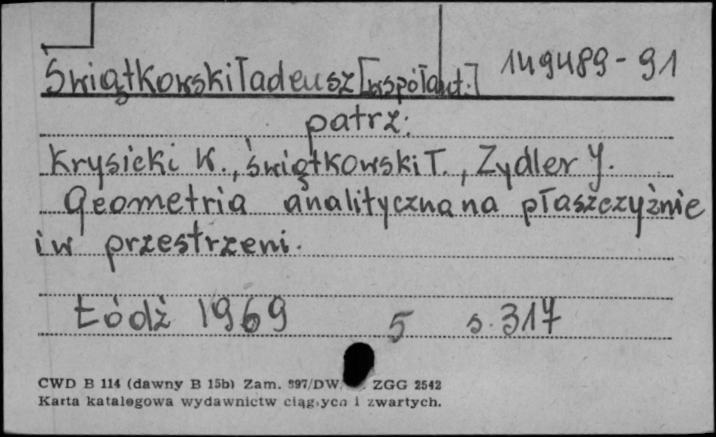 Świątkowski Tadeusz [współaut.] 149489-91
patrz:
Krysicki W., Świątkowski T., Zydler J.
Geometria analityczna na płaszczyźnie
i w przestrzeni.
Łódź 1969 5 s. 317
CWD B 114 (dawny B 15b) Zam. 897/DW. ZGG 2542
Karta katalogowa wydawnictw ciągłych i zwartych.